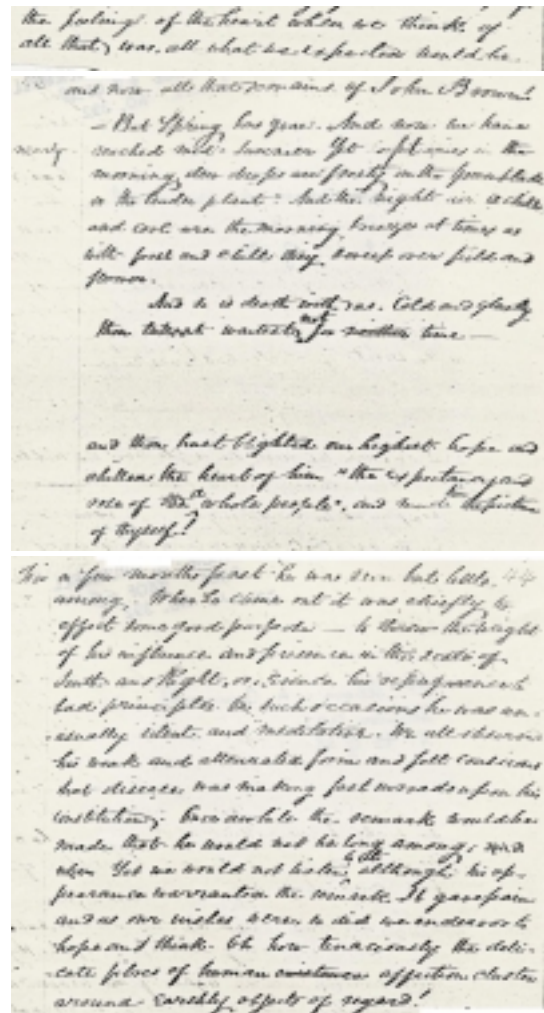 the feelings of the heart when we think of
all that was, all what we expected would be
and now all that remains of John Brown!
— But Spring has gone. And now we have
nearly
reached mid summer Yet oft times in the
morning dew drops are frosty on the
or the tender plant. And the night air is chill
and cool are the morning breezes at times as
with frost and chill they sweep over field and
flower.
And so is death with us. Cold and ghastly
thou waitest not for
and thou hast blighted our highest hope and
chilled the heart of him "the expectancy and
rose of the whole people", and made the
of thyself!
For a few months past he was seen but little 44
among, When he came out it was chiefly to
effect some good purpose — to throw the weight
of his influence and presence in the scale of
truth and Right, or, evince his repugnance to
bad principle. On such occasions he was un-
usually silent and meditative. We all observed
his weak and attenuated form and felt conscious
that disease was making fast inroads upon his
constitution, the remark would be
made that he would not be long among,
when Yet we would not listen to it although his ap-
pearance warranted the remark. It gave pain
and as our wishes were so did we endeavor to
hope and think. Oh how tenaciously the deli-
cate fibres of human existence affection cluster
around earthly objects of regard!